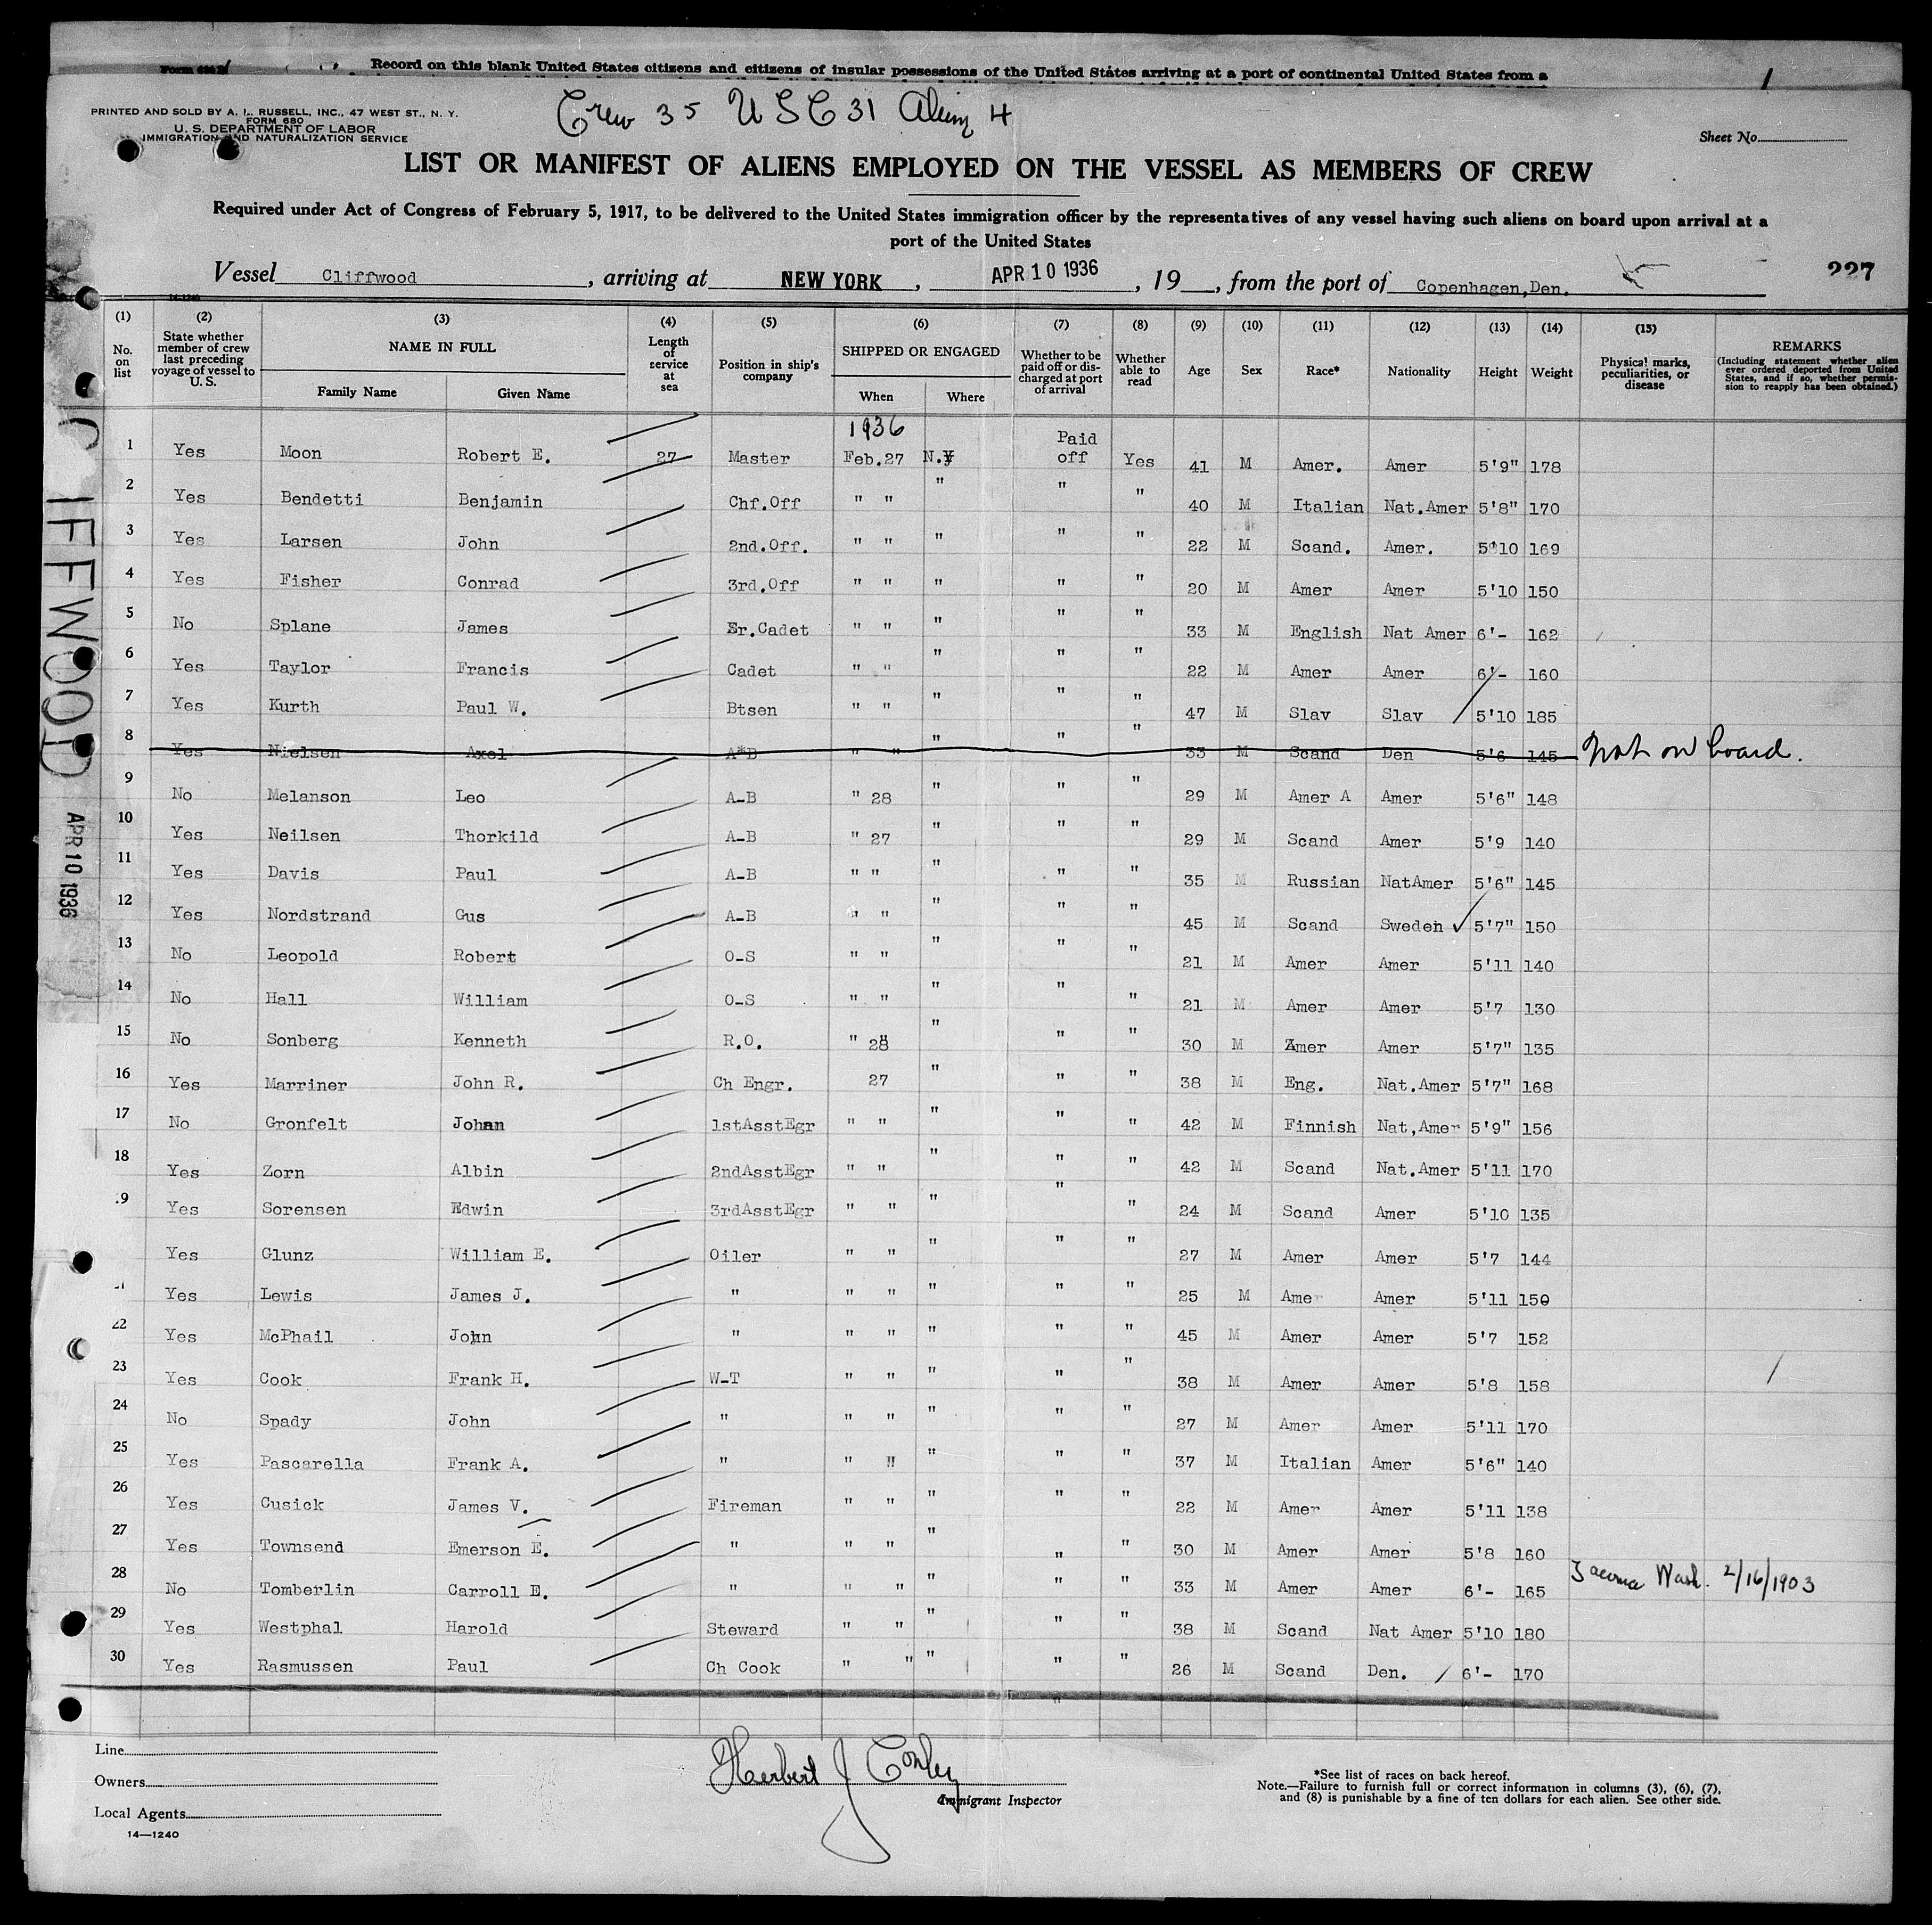 Form 680
Record on this blank United States citizens and citizens of insular possessions of the United States arriving at a port of continental United States from a
Crew 35 USC 31 Aliens 4
PRINTED AND SOLD BY A. L. RUSSELL, INC., 47 WEST ST., N. Y.
FORM 680
U. S. DEPARTMENT OF LABOR
IMMIGRATION AND NATURALIZATION SERVICE
Sheet No.
LIST OR MANIFEST OF ALIENS EMPLOYED ON THE VESSEL AS MEMBERS OF CREW
Required under Act of Congress of February 5, 1917, to be delivered to the United States immigration officer by the representatives of any vessel having such aliens on board upon arrival at a
port of the United States
Vessel Cliffwood, arriving at NEW YORK, APR 10 1936, 19__, from the port of Copenhagen,Den. 227
14-1240
(1) (2) (3) (4) (5) (6) (7) (8) (9) (10) (11) (12) (13) (14) (15)
No. on list State whether member of crew last preceding voyage of vessel to U. S. NAME IN FULL Family Name Given Name Length of service at sea Position in ship's company SHIPPED OR ENGAGED When Where Whether to be paid off or discharged at port of arrival Whether able to read Age Sex Race* Nationality Height Weight Physical marks, peculiarities, or disease REMARKS (Including statement whether alien ever ordered deported from United States, and if so, whether permission to reapply has been obtained.)
1936
1 Yes Moon Robert E. 27 Master Feb.27 N.Y Paid off Yes 41 M Amer. Amer 5'9" 178
2 Yes Bendetti Benjamin Chf.Off " " " " " 40 M Italian Nat.Amer 5'8" 170
3 Yes Larsen John 2nd.Off. " " " " " 22 M Scand. Amer. 5'10 169
4 Yes Fisher Conrad 3rd.Off " " " " " 20 M Amer Amer 5'10 150
5 No Splane James Sr.Cadet " " " " " 33 M English Nat Amer 6'- 162
6 Yes Taylor Francis Cadet " " " " " 22 M Amer Amer 6'- 160
7 Yes Kurth Paul W. Btsen " " " " " 47 M Slav Slav 5'10 185
8 Yes Nielsen Axel A-B " " " " " 33 M Scand Den 5'6 145 Not on board.
9 No Melanson Leo A-B " 28 " " " 29 M Amer A Amer 5'6" 148
10 Yes Neilsen Thorkild A-B " 27 " " " 29 M Scand Amer 5'9 140
11 Yes Davis Paul A-B " " " " " 35 M Russian NatAmer 5'6" 145
12 Yes Nordstrand Gus A-B " " " " " 45 M Scand Sweden 5'7" 150
13 No Leopold Robert O-S " " " " " 21 M Amer Amer 5'11 140
14 No Hall William O-S " " " " " 21 M Amer Amer 5'7 130
15 No Sonberg Kenneth R.O. " 28 " " " 30 M Amer Amer 5'7" 135
16 Yes Marriner John R. Ch Engr. 27 " " " 38 M Eng. Nat.Amer 5'7" 168
17 No Gronfelt Johan 1stAsstEgr " " " " " 42 M Finnish Nat,Amer 5'9" 156
18 Yes Zorn Albin 2ndAsstEgr " " " " " 42 M Scand Nat.Amer 5'11 170
.9 Yes Sorensen Edwin 3rdAsstEgr " " " " " 24 M Scand Amer 5'10 135
Yes Glunz William E. Oiler " " " " " 27 M Amer Amer 5'7 144
Yes Lewis James J. " " " " " " 25 M Amer Amer 5'11 150
22 Yes McPhail John " " " " " " 45 M Amer Amer 5'7 152
23 Yes Cook Frank H. W-T " " " " " 38 M Amer Amer 5'8 158
24 No Spady John " " " " " " 27 M Amer Amer 5'11 170
25 Yes Pascarella Frank A. " " " " " " 37 M Italian Amer 5'6" 140
26 Yes Cusick James V. Fireman " " " " " 22 M Amer Amer 5'11 138
27 Yes Townsend Emerson E. " " " " " " 30 M Amer Amer 5'8 160
28 No Tomberlin Carroll E. " " " " " " 33 M Amer Amer 6'- 165 Tacoma Wash. 2/16/1903
29 Yes Westphal Harold Steward " " " " " 38 M Scand Nat Amer 5'10 180
30 Yes Rasmussen Paul Ch Cook " " " " " 26 M Scand Den. 6'- 170
"
Line
Owners
Local Agents
14—1240
Herbert J Conley
Immigrant Inspector
*See list of races on back hereof.
Note.—Failure to furnish full or correct information in columns (3), (6), (7),
and (8) is punishable by a fine of ten dollars for each alien. See other side.
IFFWOOD
APR 10 1936